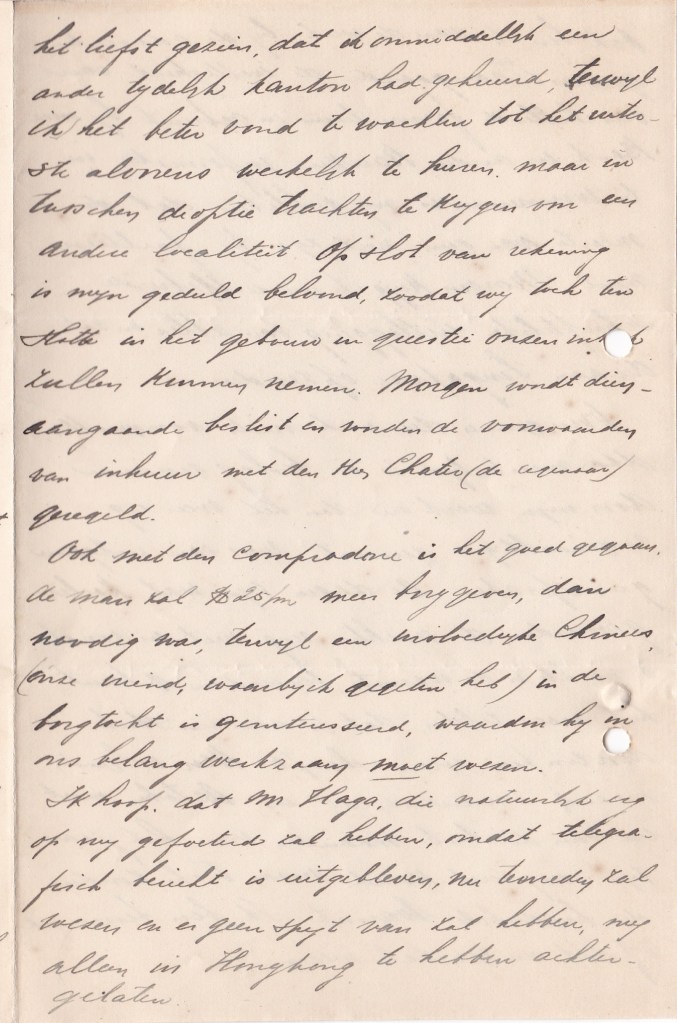 het liefst gezien, dat ik onmiddellyk een
ander tydelyk kantoor had gehuurd, terwyl
ik het beter vond te wachten tot het uiter-
ste alvorens werkelyk te huren, maar in
tusschen de optie trachten te krygen om een
andere localiteit. Op slot van rekening
is myn geduld beloond, zoodat wy toch ten
slotte in het gebouw in questie onzen
zullen kunnen nemen. Morgen wordt dien-
aangaande beslist en worden de voorwaarden
van inhuur met den Chater (de eigenaar)
geregeld.
Ook met den compradore is het goed gegaan.
de man zal $ 25/m meer borg geven, dan
noodig was, terwyl een invloedryke Chinees,
(onze vriend, waarby ik gegeten heb) in de
borgtocht is geinteresseerd, waardoor hy in
ons belang werkzaam moet wezen.
Ik hoop, dat Mr Haga, die natuurlyk erg
op my gefoeterd zal hebben, omdat telegra-
fisch bericht is uitgebleven, nu tevreden zal
wezen en er geen spyt van zal hebben, my
alleen in Hongkong te hebben achter-
gelaten.